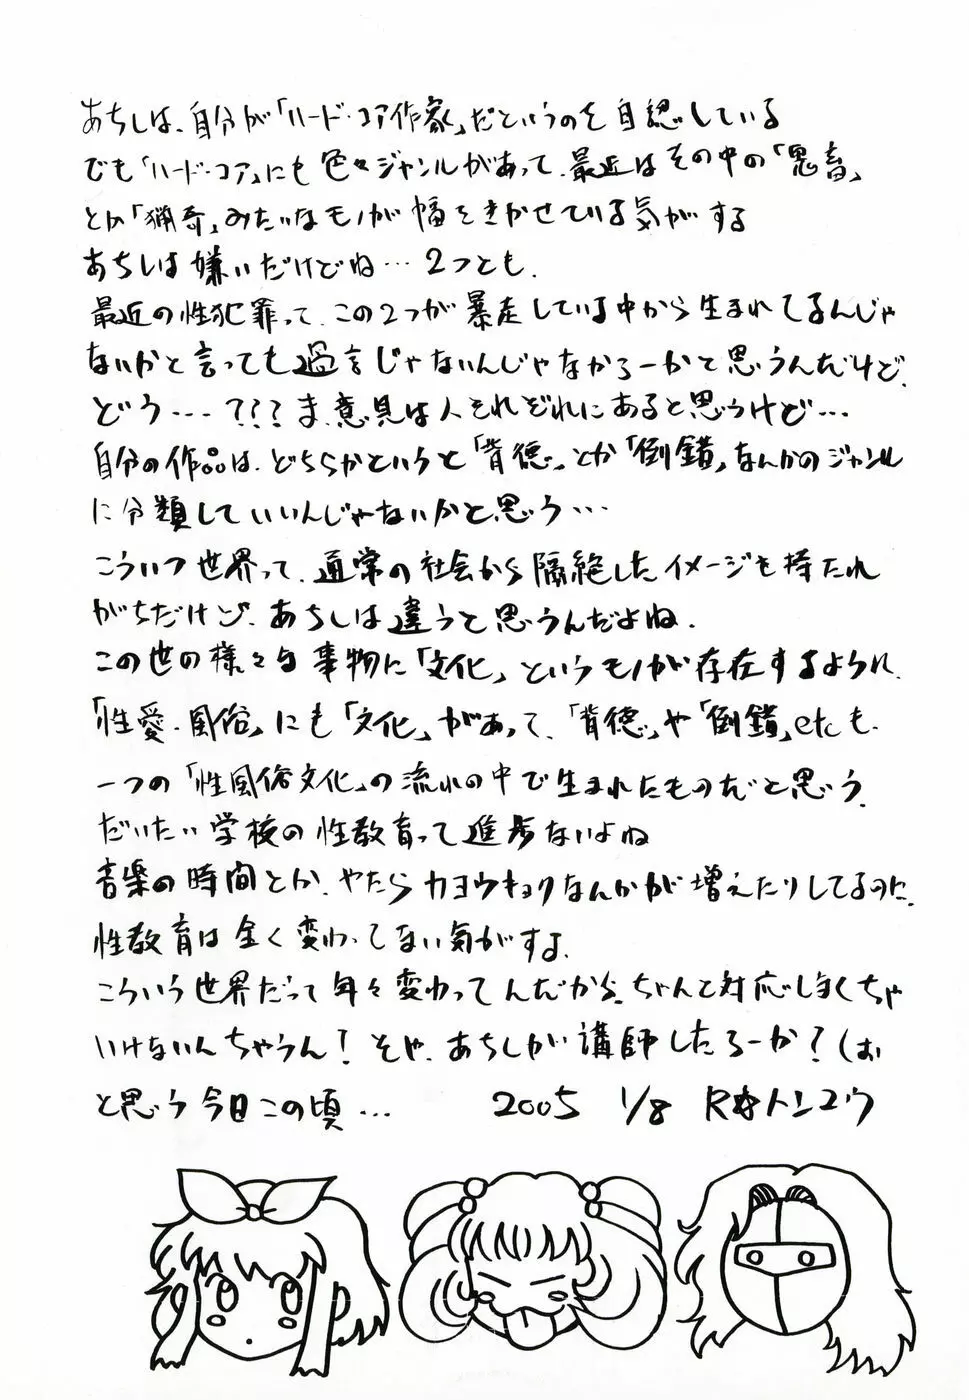 あちしは、自分が「ハード・コア作家」だというのを自認している
でも「ハード・コア」にも色々ジャンルがあって、最近はその中の「鬼畜」
とか「猟奇」みたいなモノが幅をきかせている気がする
あちしは嫌いだけどね…2つとも。
最近の性犯罪って、この2つが暴走している中から生まれてるんじゃ
ないかと言っても過言じゃないんじゃなかろーかと思うんだけど、
どう…???ま、意見は人それぞれにあると思うけど…
自分の作品は、どちらかというと「背徳」とか「倒錯」なんかのジャンル
に分類していいんじゃないかと思う…
こういう世界って、通常の社会から隔絶したイメージを持たれ
がちだけど、あちしは違うと思うんだよね。
この世の様々な事物に「文化」というモノが存在するように、
「性愛・風俗」にも「文化」があって、「背徳」や「倒錯」etcも、
一つの「性風俗文化」の流れの中で生まれたものだと思う。
だいたい学校の性教育って進歩ないよね
音楽の時間とか、やたらカヨウキョクなんかが増えたりしてるのに、
性教育は全く変わってない気がするよ
こういう世界だって年々変わってんだから、ちゃんと対応しなくちゃ
いけないんちゃうん!そや、あちしが講師したろーか?(お
と思う今日この頃…
2005 1/8 R☆トシユウ